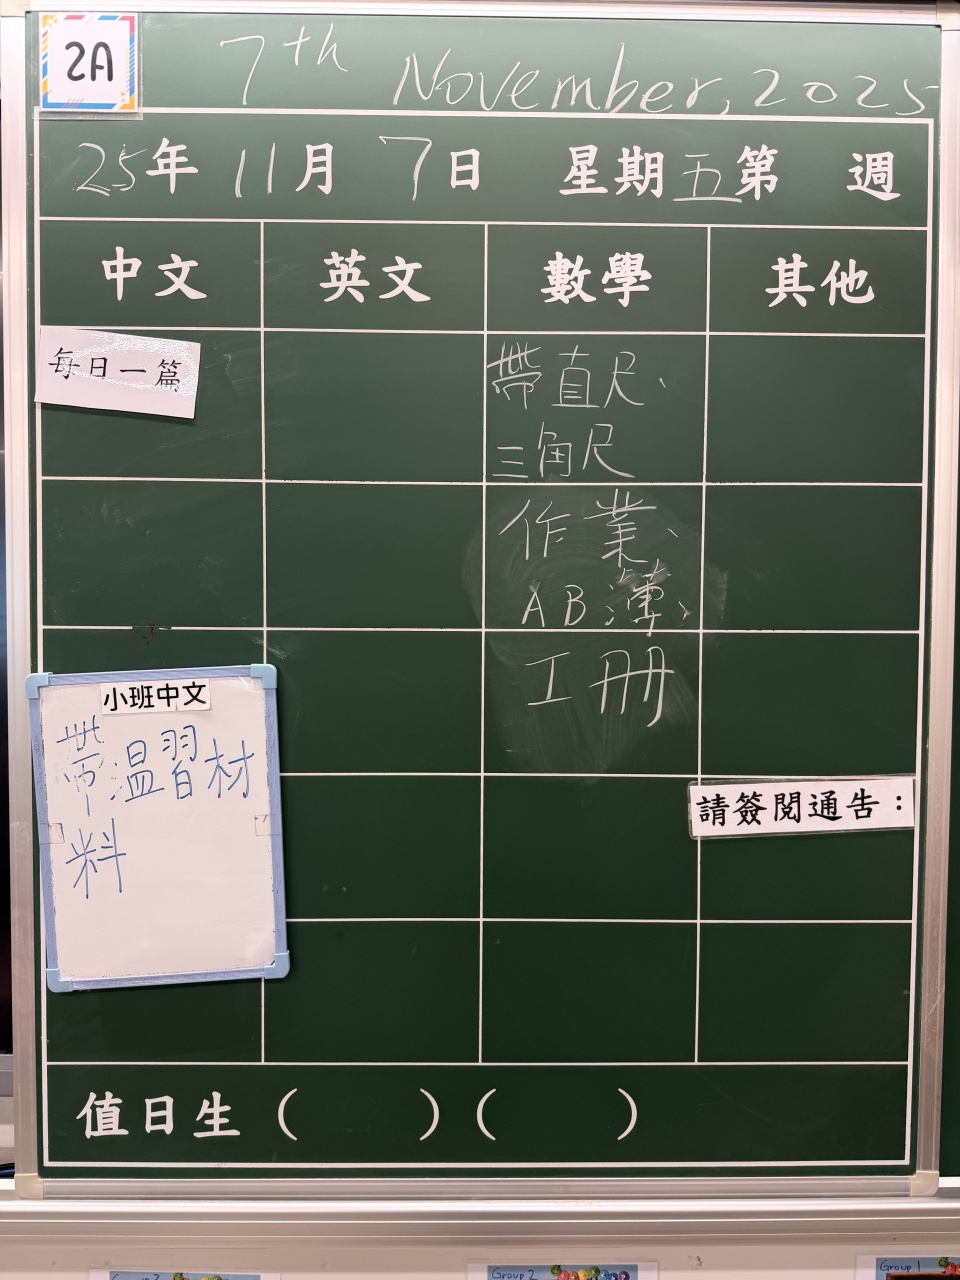 2A
7th November, 2025
25年 11月 7日 星期五第 週
中文 英文 數學 其他
每日一篇
帶直尺、
三角尺
作業、
AB簿、
工冊
小班中文
帶溫習材
料
請簽閱通告：
值日生（ ）（ ）
Group 2
Group 1